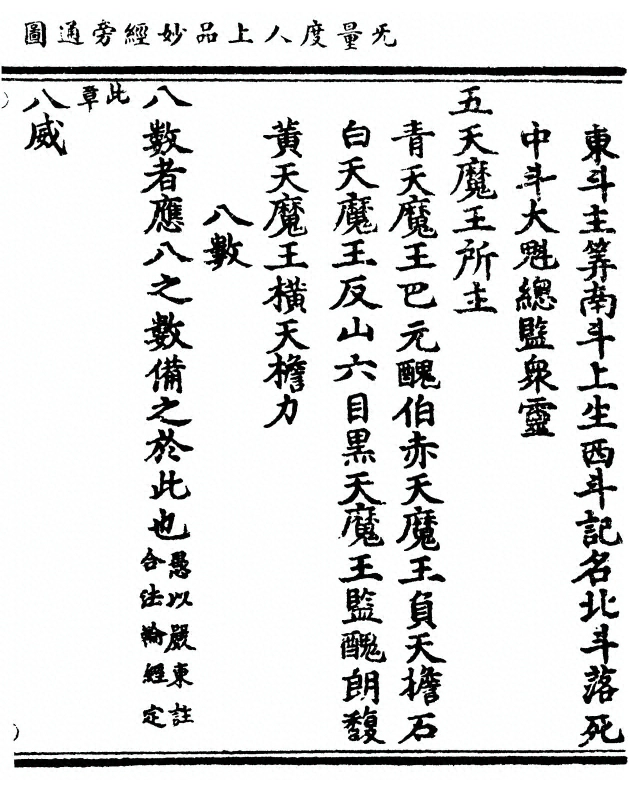 无量度人上品妙經旁通圖
東斗主筭南斗上生西斗記名北斗落死
中斗大魁總監衆靈
五天魔王所主
青天魔王巴元醜伯赤天魔王負天擔石
白天魔王反山六目黒天魔王監醜朗馥
黄天魔王橫天檐力
八數
八數者應八之數備之於此也愚以嚴東註
合法輪經定
此
章
八威